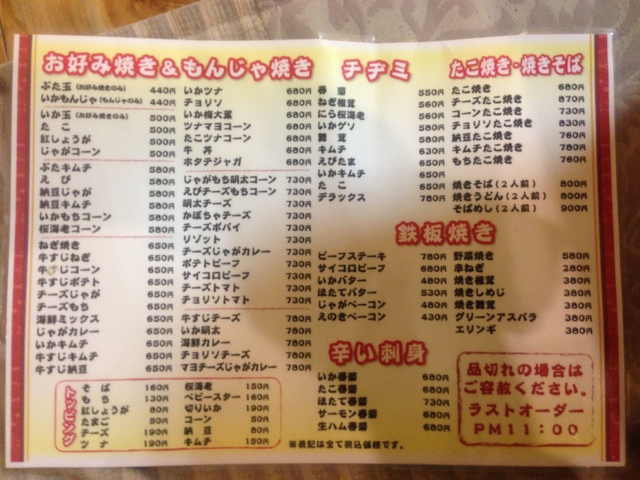 お好み焼き&もんじゃ焼き
ぶた玉 (お好み焼きのみ) 440円
いかもんじゃ (もんじゃのみ) 440円
いか玉 (お好み焼きのみ) 500円
たこ 500円
紅しょうが 500円
じゃがコーン 500円
ぶたキムチ 580円
えび 580円
納豆じゃが 580円
納豆キムチ 580円
いかもちコーン 580円
桜海老コーン 580円
ねぎ焼き 650円
牛すじねぎ 650円
牛すじコーン 650円
牛すじポテト 650円
チーズじゃが 650円
チーズもち 650円
海鮮ミックス 650円
じゃがカレー 650円
いかキムチ 650円
牛すじキムチ 650円
牛すじ納豆 650円
いかツナ 680円
チョリソ 680円
いか梅大葉 680円
ツナマヨコーン 680円
たこツナコーン 680円
牛丼 680円
ホタテジャガ 680円
じゃがもち明太コーン 730円
えびチーズもちコーン 730円
明太チーズ 730円
かぼちゃチーズ 730円
チーズポパイ 730円
リゾット 730円
チーズじゃがカレー 730円
ポテトビーフ 730円
サイコロビーフ 730円
チーズトマト 730円
チョリソトマト 730円
牛すじチーズ 780円
いか明太 780円
海鮮カレー 780円
チョリソチーズ 780円
マヨチーズじゃがカレー 780円
トッピング
そば 160円
もち 130円
紅しょうが 80円
たまご 50円
チーズ 190円
ツナ 190円
桜海老 150円
ベビースター 160円
切りいか 190円
コーン 50円
納豆 80円
キムチ 150円
チヂミ
春菊 550円
ねぎ椎茸 560円
にら桜海老 560円
いかゲソ 580円
舞茸 580円
キムチ 630円
えびたま 650円
いかキムチ 650円
たこ 650円
デラックス 780円
たこ焼き・焼きそば
たこ焼き 680円
チーズたこ焼き 870円
コーンたこ焼き 730円
チョリソたこ焼き 830円
納豆たこ焼き 760円
キムチたこ焼き 780円
もちたこ焼き 760円
焼きそば(2人前) 800円
焼きうどん(2人前) 800円
そばめし(2人前) 900円
鉄板焼き
ビーフステーキ 780円
サイコロビーフ 680円
いかバター 480円
ほたてバター 530円
じゃがベーコン 480円
えのきベーコン 430円
野菜焼き 580円
串ねぎ 280円
焼き椎茸 380円
焼きしめじ 380円
焼き舞茸 380円
グリーンアスパラ 380円
エリンギ 380円
辛い刺身
いか春菊 680円
たこ春菊 680円
ほたて春菊 730円
サーモン春菊 680円
生ハム春菊 680円
※表記は全て税込価格です。
品切れの場合は
ご容赦ください。
ラストオーダー
PM11:00